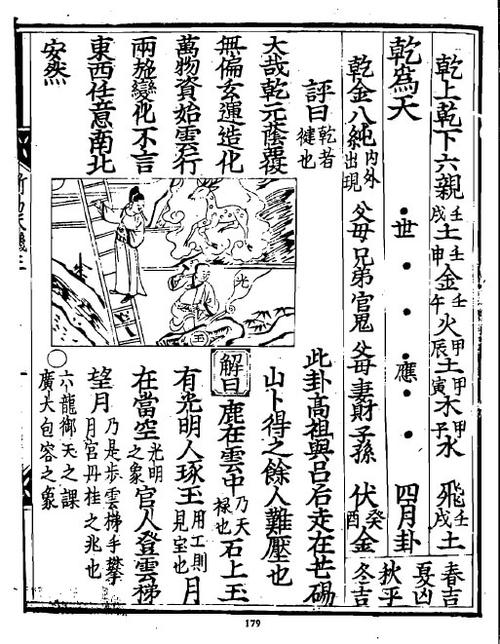 乾上乾下六親 壬戌土 壬申金 壬午火 甲辰土 甲寅木 甲子水 飛壬戌土 春吉
乾為天 世 應 四月卦 夏凶
秋平
乾金八純內外出現 父母兄弟官鬼父母妻財子孫 伏癸酉金 冬吉
評曰乾者健也
大哉乾元蔭覆
無偏玄運造化
萬物資始雲行
雨施變化不言
東西任意南北
安然
光
玉
此卦高祖與呂后走在芒碭
山卜得之餘人難壓也
解曰鹿在雲中乃天祿也石上玉
有光明人琢玉用工則見宝也月
在當空光明之象官人登雲梯
望月乃是步雲梯手攀月宮丹桂之兆也
○六龍御天之課
廣大包容之象
179